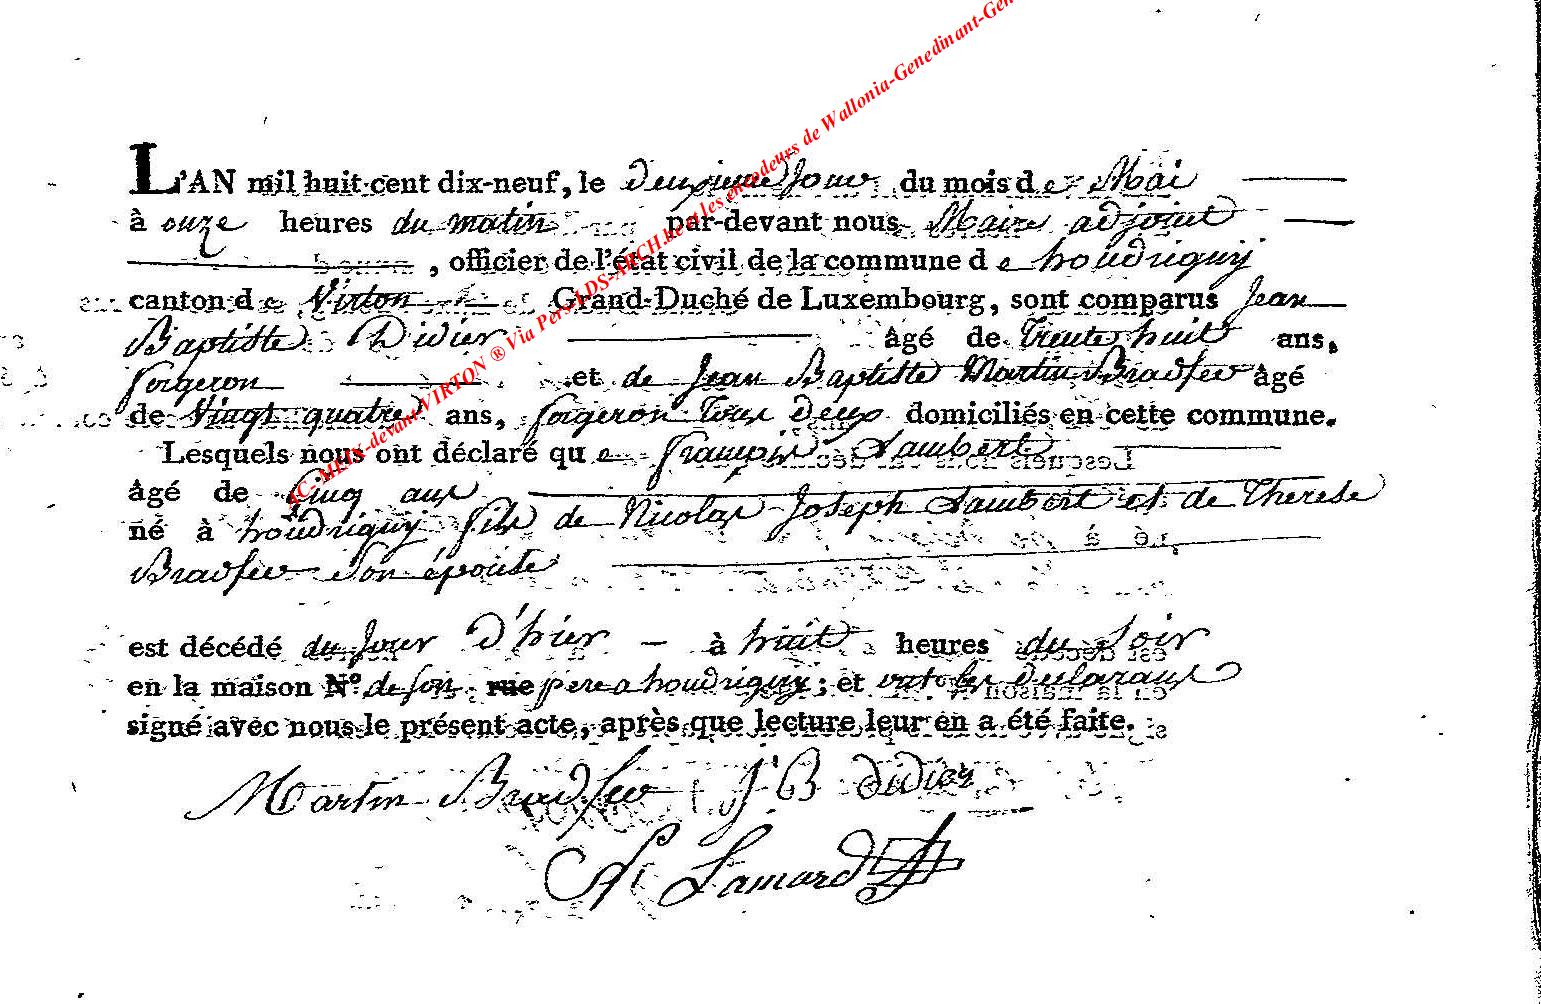 L'AN mil huit cent dix-neuf, le deuxieme Jour du mois de Mai
à onze heures du matin par-devant nous Maire adjoint
, officier de l'état civil de la commune de houdrigny
canton de Virton Grand-Duché de Luxembourg, sont comparus Jean
Baptiste Didier âgé de Trente huit ans,
forgeron et de Jean Baptiste Martin Bradfer âgé
de Vingt quatre ans, forgeron Tous deux domiciliés en cette commune.
Lesquels nous ont déclaré que françois Lambert
âgé de Cinq ans
né à houdrigny fils de Nicolas Joseph Lambert et de Therese
Bradfer Son épouse
est décédé du Jour d'hier à huit heures du Soir
en la maison N.º de son rue pere a houdrigny; et ont les declarans
signé avec nous le présent acte, après que lecture leur en a été faite.
Martin Bradfer J B didier
Lamard
AC-MEIX-devant-VIRTON ® Via Pers LDS-ARCH.be et les encodeurs de Wallonia-Genedinant-Gen